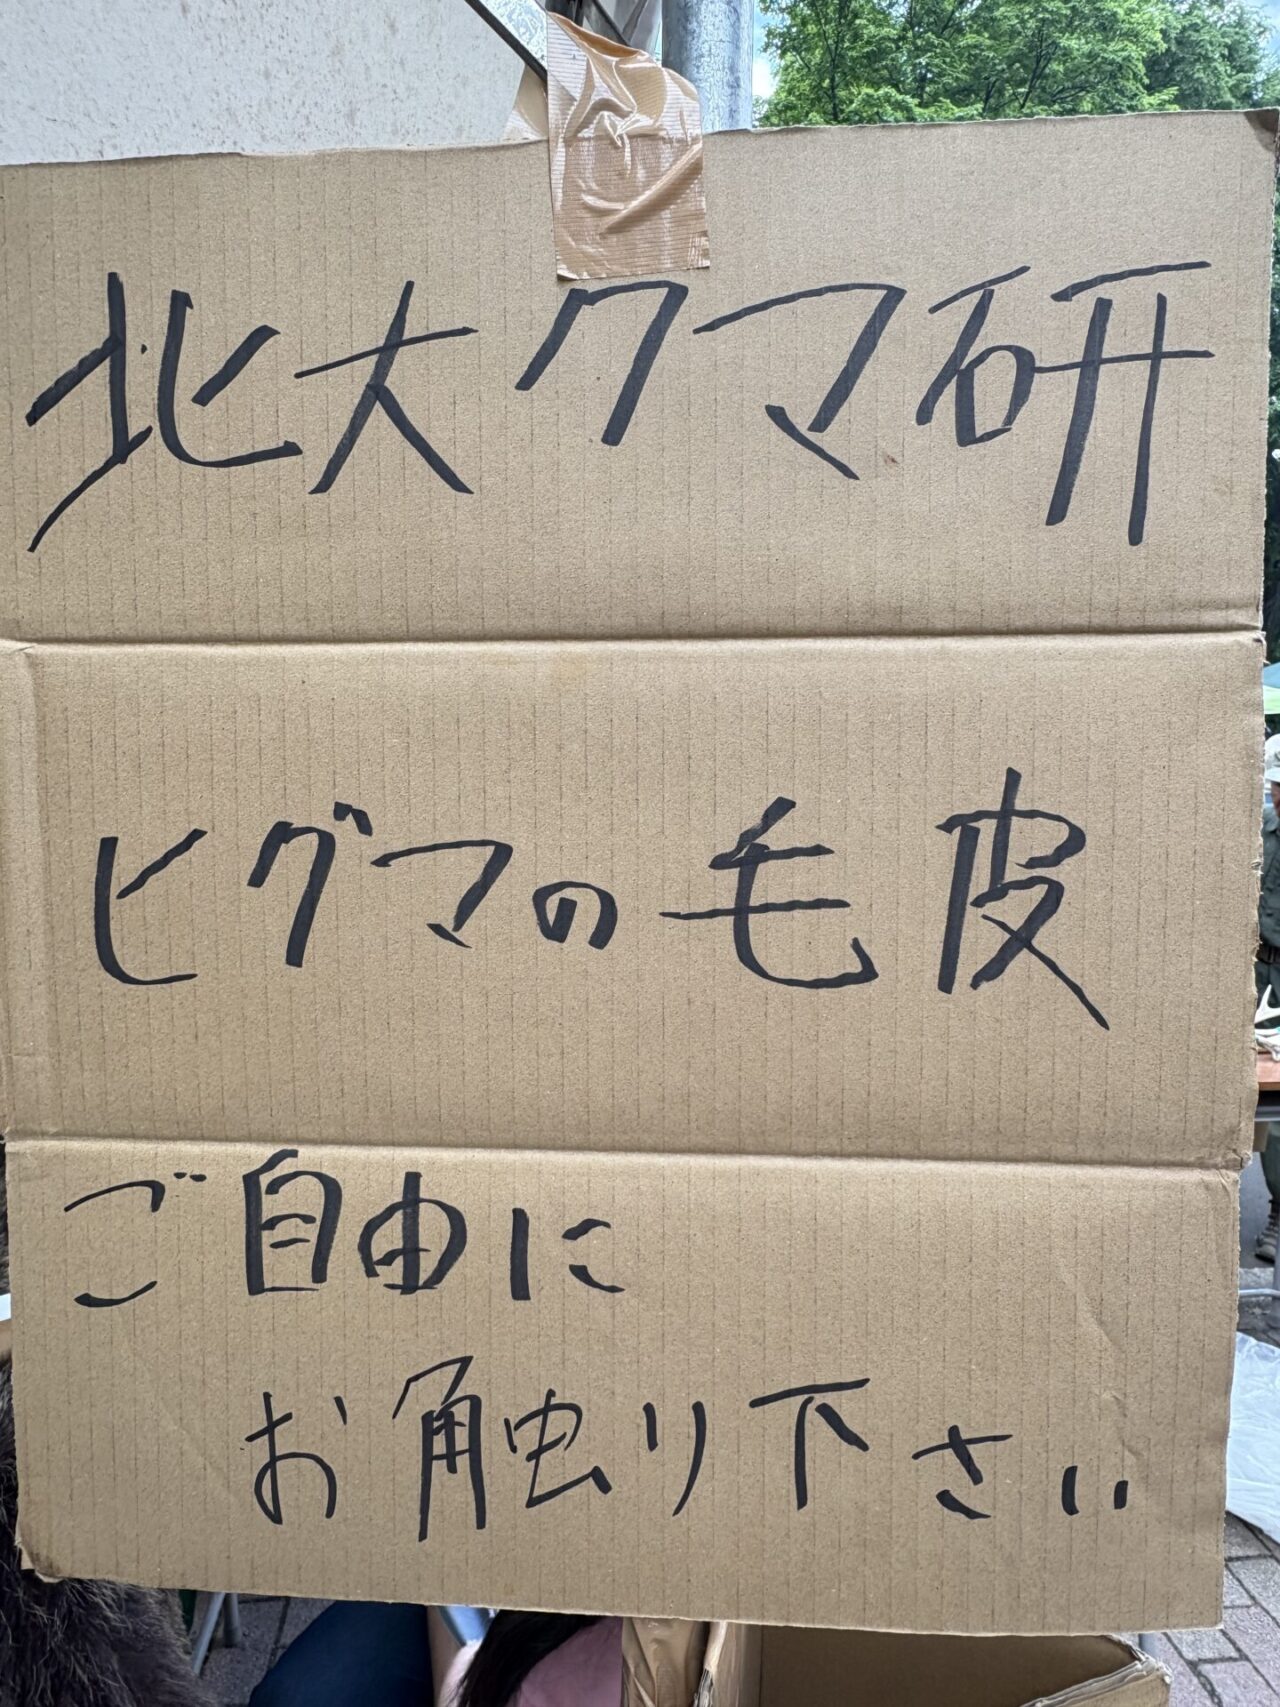 北大クマ研
ヒグマの毛皮
ご自由に
お触り下さい